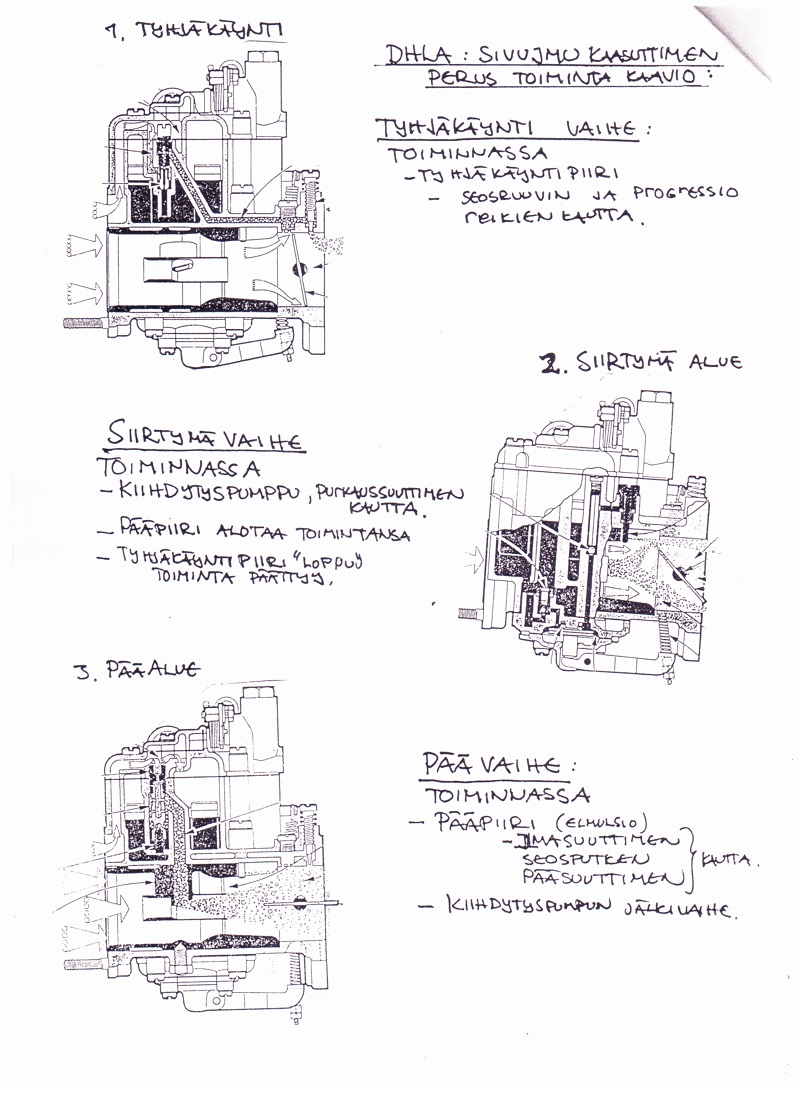 1. TYHJÄKÄYNTI
DHLA : SIVUJMU KAASUTTIMEN
PERUS TOIMINTA KAAVIO :
TYHJÄKÄYNTI VAIHE :
TOIMINNASSA
- TYHJÄKÄYNTIPIIRI
- SEOSRUUVIN JA PROGRESSIO
REIKIEN KAUTTA.
2. SIIRTYMÄ ALUE
SIIRTYMÄ VAIHE
TOIMINNASSA
- KIIHDYTYSPUMPPU, PURKAUSSUUTTIMEN
KAUTTA.
- PÄÄPIIRI ALOTAA TOIMINTANSA
- TYHJÄKÄYNTIPIIRI "LOPPUU
TOIMINTA PÄÄTTYY.
3. PÄÄALUE
PÄÄVAIHE :
TOIMINNASSA
- PÄÄPIIRI (ELMULSIO)
- ILMASUUTTIMEN
SEOSPUTKEN
PÄÄSUUTTIMEN } KAUTTA.
- KIIHDYTYSPUMPUN JÄLKIVAIHE.